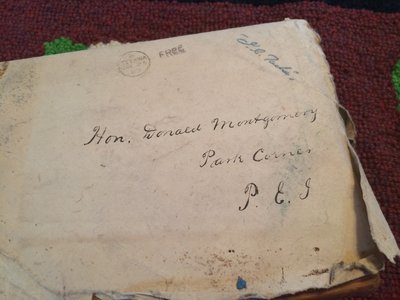 FREE
Hon. Donald Montgomery
Park Corner
P. E. I